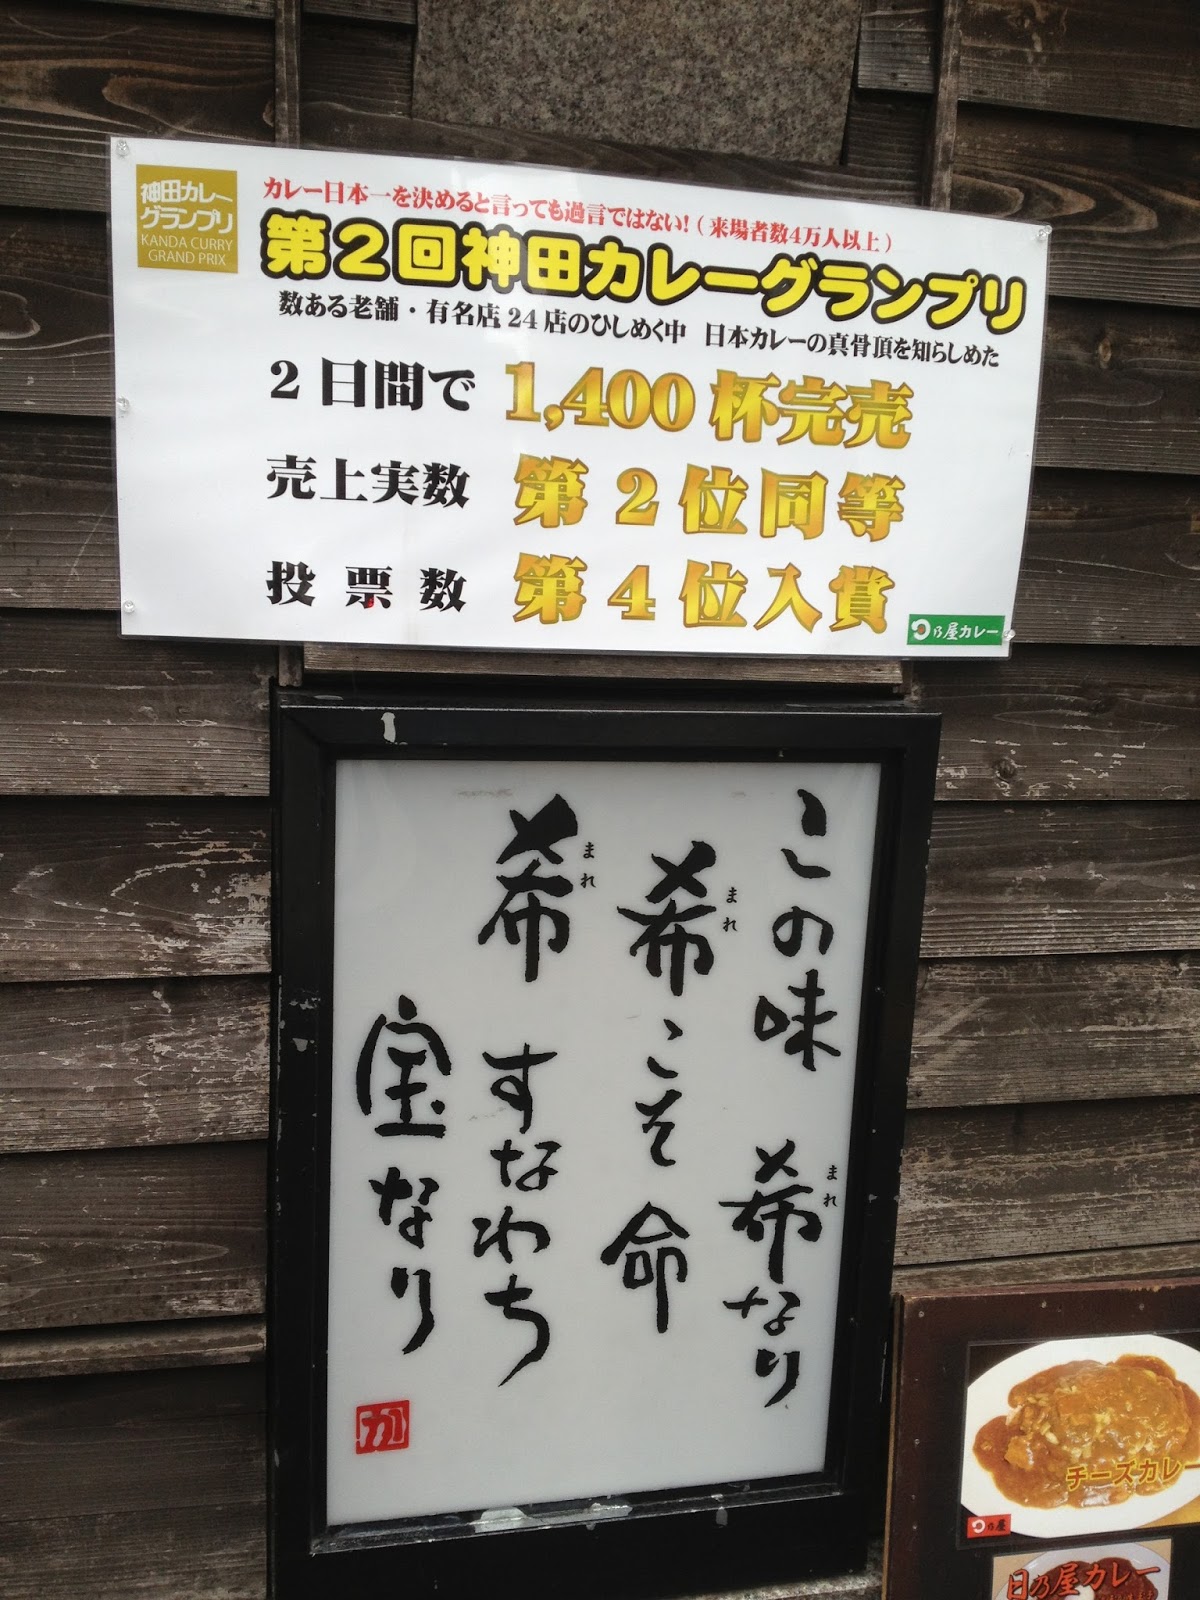 神田カレー
グランプリ
KANDA CURRY
GRAND PRIX
カレー日本一を決めると言っても過言ではない!(来場者数4万人以上)
第2回神田カレーグランプリ
数ある老舗・有名店24店のひしめく中 日本カレーの真骨頂を知らしめた
2日間で 1,400杯完売
売上実数 第2位同等
投票数 第4位入賞
日乃屋カレー
この味 希なり
まれ
希こそ命
まれ
希 すなわち
まれ
宝なり
か
チーズカレー
日乃屋
日乃屋カレー